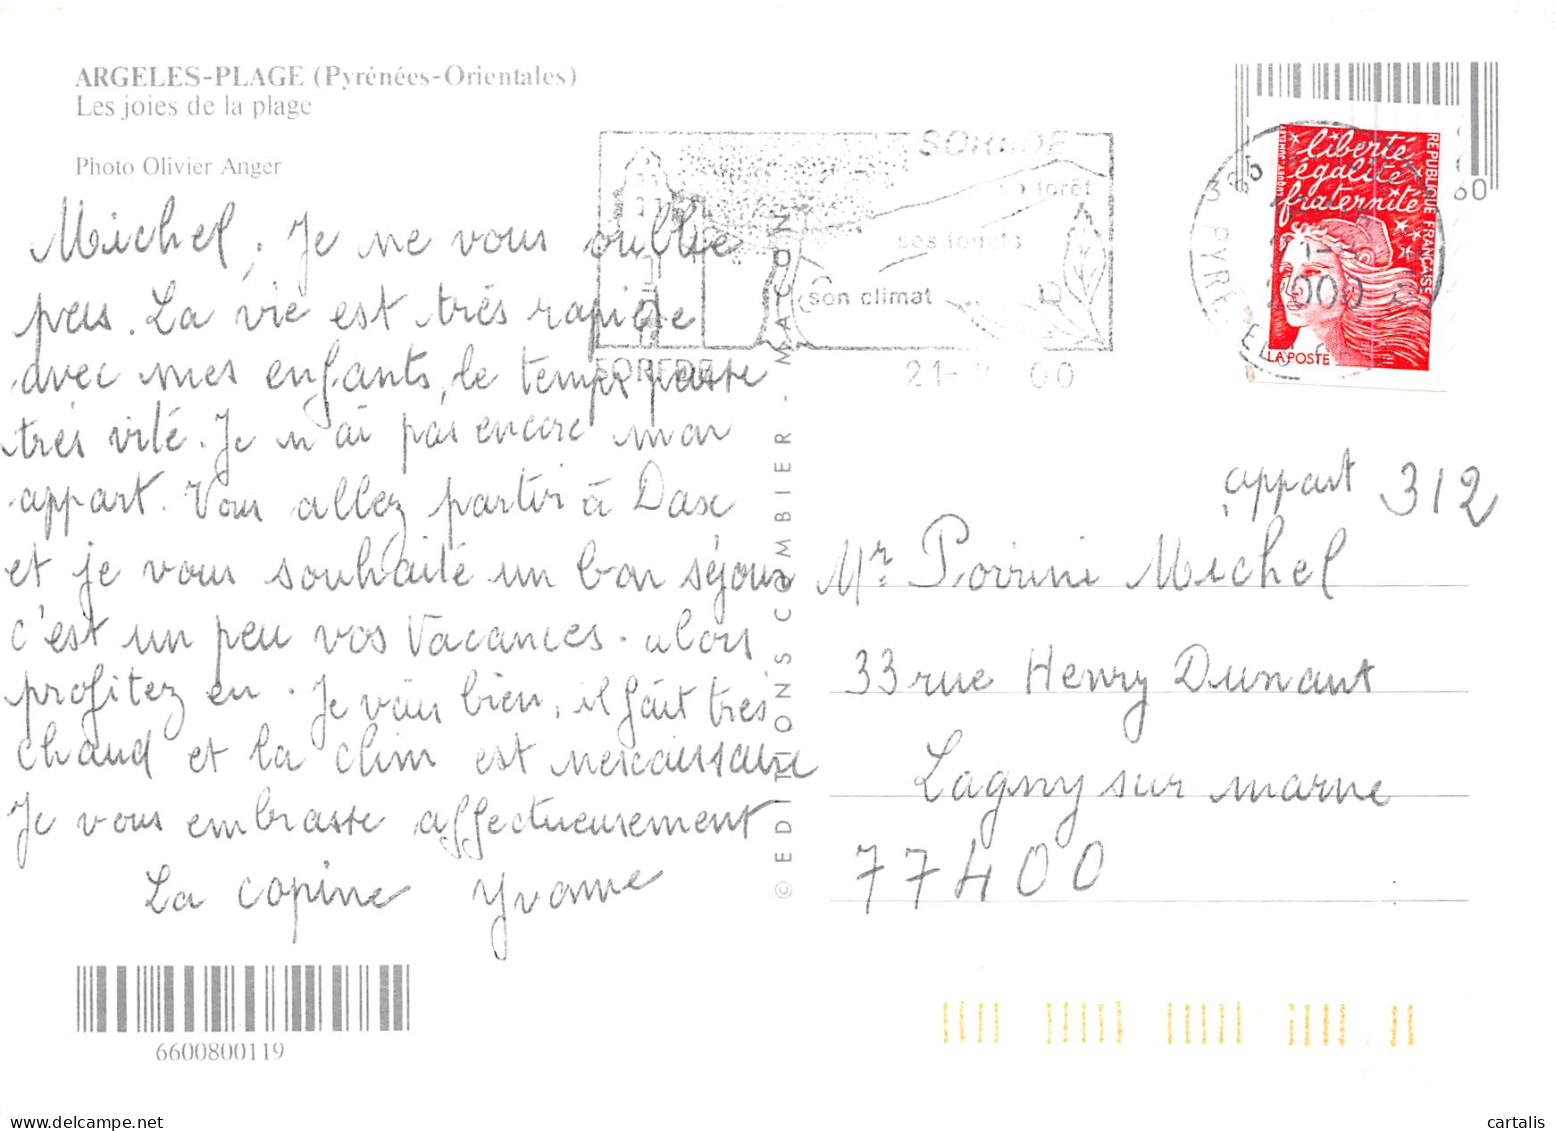 ARGELES-PLAGE (Pyrénées-Orientales)
Les joies de la plage
Photo Olivier Anger
Michel, Je ne vous oublie
pas. La vie est très rapide
avec mes enfants, le temps passe
très vite. Je n'ai pas encore mon
appart. Vous allez partir à Dax
et je vous souhaite un bon séjour
c'est un peu vos Vacances. alors
profitez en. Je vais bien, il fait très
chaud et la clim est
Je vous embrasse affectueusement
La copine Yvonne
6600800119
© EDITIONS COMBIER - MACON
SOREDE
sa forêt
ses fouets
son climat
SOREDE
21- 00
2000
liberté
égalité
fraternité
REPUBLIQUE FRANÇAISE
LA POSTE
60
appart 312
Mr Michel
33 rue Henry Dunant
Lagny sur marne
77400
cartalis